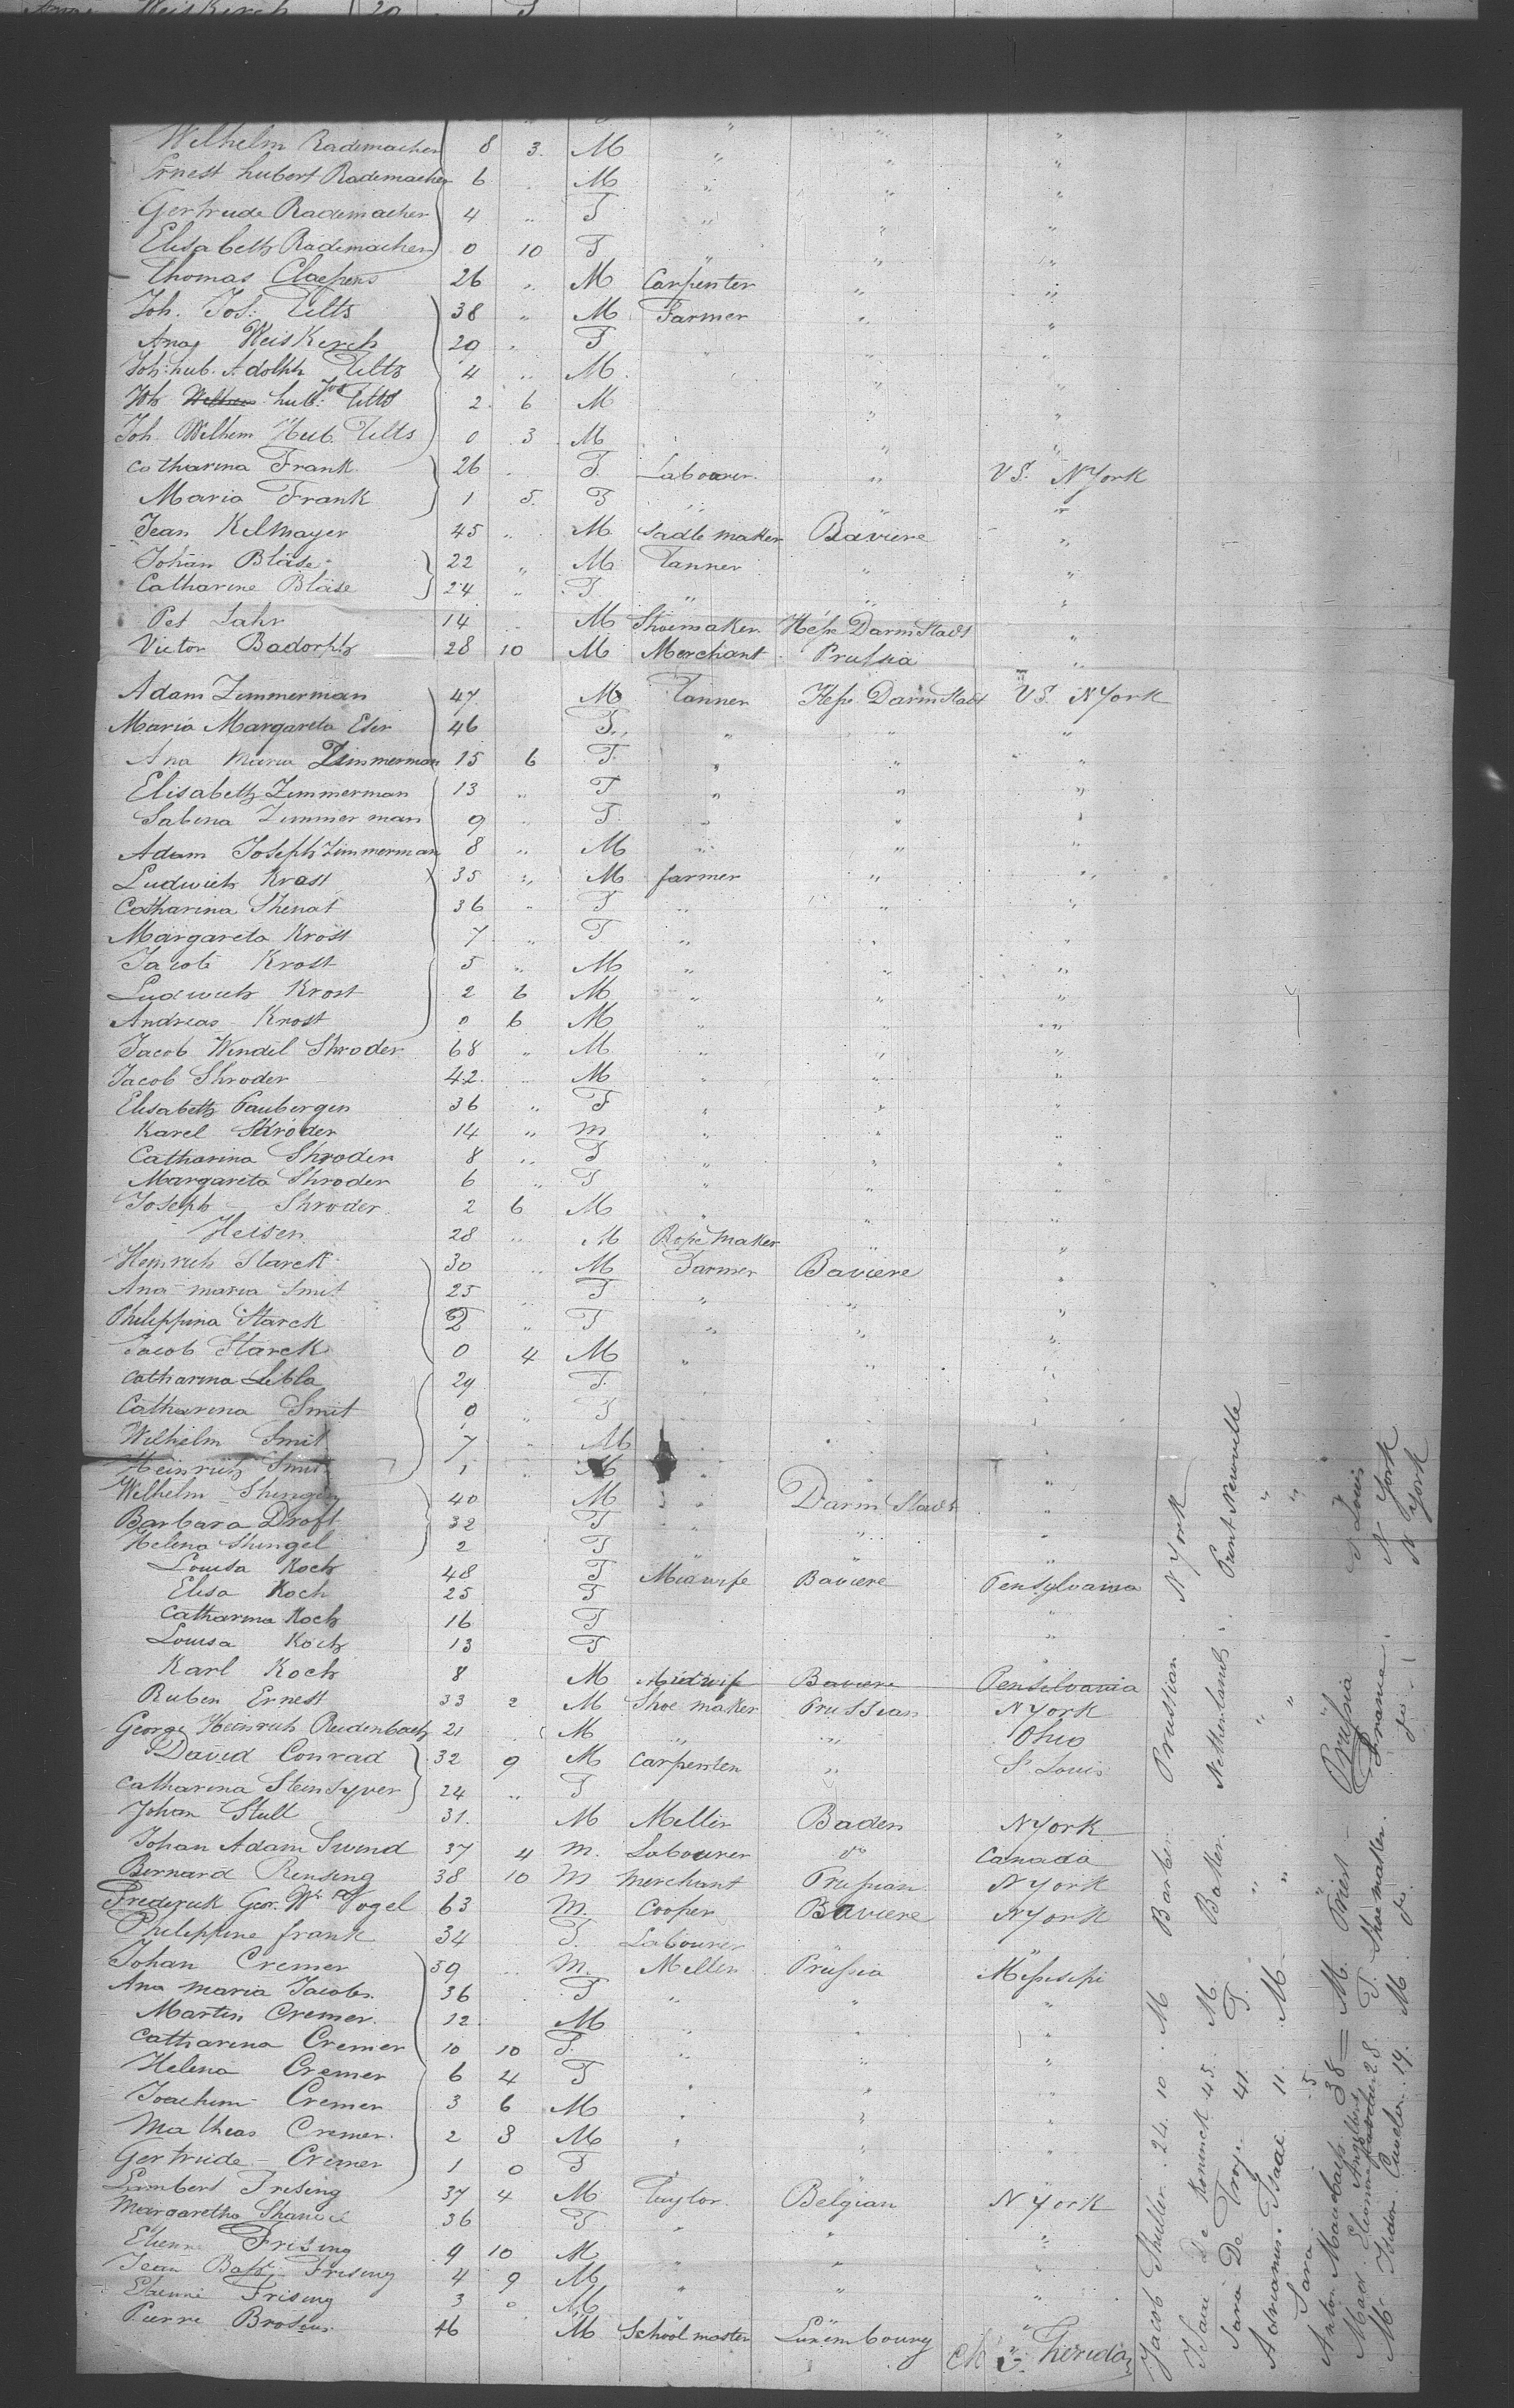 Anna Weiskerch 20 F
Wilhelm Rademacher 8 3 M " " "
Ernest hubert Rademacher 6 " M " " "
Gertrude Rademacher 4 " F " " "
Elisabeth Rademacher 0 10 F " " "
Thomas 26 " M Carpenter " "
Joh. Jos: Tilts 38 " M Farmer " "
Ana Weiskerch 20 " F " "
Joh: hub. Adolph Tilts 4 " M " "
Joh hub: Jos Tilts 2 6 M " "
Joh Wilhem Hub. Tilts 0 3 M " "
Catharina Frank 26 F Labourer " US. NYork
Maria Frank 1 5 F " " "
Jean Kelmayer 45 " M Sadle maker Baviere "
Johan Bläse 22 " M Tanner " "
Catharine Bläse 24 " F " " "
Pet Lahr 14 M Shoemaker Hesse Darmstadt "
Victor Badorph 28 10 M Merchant Prussia "
Adam Zimmerman 47 M Tanner Hesse Darmstadt US. NYork
Maria Margareta Eser 46 F " " "
Ana Maria Zimmerman 15 6 F " " "
Elisabeth Zimmerman 13 " F " " "
Sabina Zimmerman 9 " F " " "
Adam Joseph Zimmerman 8 " M " " "
Ludwich Krost 35 " M farmer " "
Catharina 36 " F " " "
Margareta Krost 7 " F " " "
Jacob Krost 5 " M " " "
Ludwich Krost 2 6 M " " "
Andreas Krost 0 6 M " " "
Jacob Wendel Shroder 68 " M " " "
Jacob Shroder 42 " M " " "
Elisabeth Paubergen 36 " F " " "
Karel Shroder 14 " M " " "
Catharina Shroder 8 " F " " "
Margareta Shroder 6 " F " " "
Joseph Shroder 2 6 M " " "
Heisen 28 " M Rope maker " "
Heinrich Starck 30 " M Farmer Baviere "
Ana maria Smit 25 " F " " "
Philippina Starck 2 " F " " "
Jacob Starck 0 4 M " " "
Catharina Libla 29 F " " "
Catharina Smit 9 " F " " "
Wilhelm Smit 7 " M " " "
Heinrich Smit 1 " M " " "
Wilhelm 40 M " Darmstadt "
Barbara Droft 32 F " " "
Helena Shingel 2 F " "
Louisa Koch 48 F Midwife Baviere Pensylvania
Elisa Koch 25 F
Catharina Koch 16 F "
Louisa Koch 13 F
Karl Koch 8 M Midwife Baviere Pensilvania
Ruben Ernest 33 2 M Shoe maker Prussian NYork
George Heinrich Reidenbach 21 M " " Ohio
David Conrad 32 9 M Carpenter " St Louis
Catharina Steinsyver 24 " F "
Johan Stull 31. M Miller Baden NYork
Johan Adam Swind 37 4 M. Labourer do Canada
Bernard Rensing 38 10 M merchant Prussian NYork
Frederick Geo. Wm Vogel 63 M. Cooper Baviere NYork
Philippine frank 34 F. Labourer
Johan Cremer 59 M. Miller Prussia Missisipi
Ana maria Jacobs 36 F " " "
Martin Cremer 12 M " " "
Catharina Cremer 10 10 F " " "
Helena Cremer 6 4 F " " "
Joachim Cremer 3 6 M " " "
Matheas Cremer 2 3 M " " "
Gertrude Cremer 1 0 F
Lambert Frising 37 4 M Taylor Belgian NYork
Margaretha 36 F " " "
Etienne Frising 9 10 M " "
Jean Bapt. Frising 4 9 M " " "
Etienne Frising 3 0 M "
Pierre Brosius 46 M School master Luxembourg "
Jacob Shuller 24. 10. M Barber Prussian NYork
Isaac De Koninck 45. M. Baker Netherlands Pruntnewville
Sara De Troye 41. F. " " "
Adrianus Isaac 11. M. " " "
Sara 5
Anton 38 M. Priest Prussia St Louis
28. F. Shoemaker France N York
Isidor 14. M do. do N York